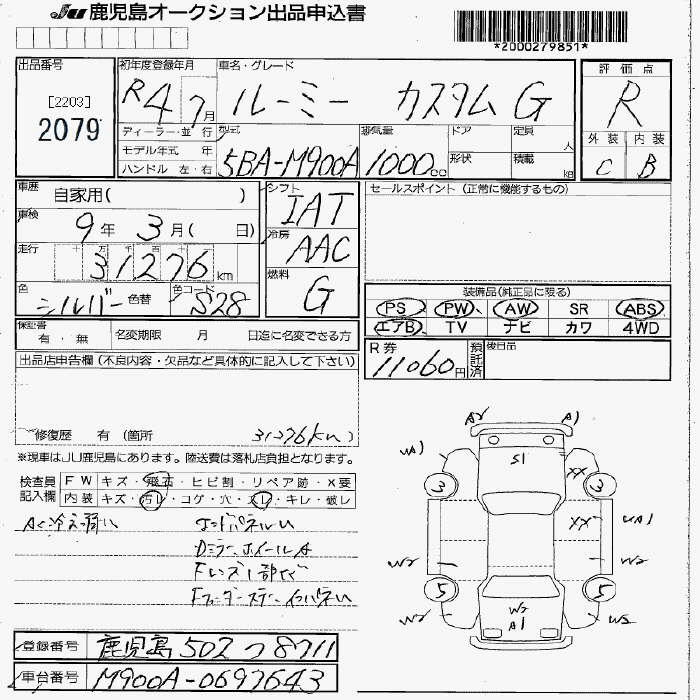 JU 鹿児島オークション出品申込書
*2000279851*
出品番号 [2203] 2079
初年度登録年月 R4 7月
車名・グレード ルーミー カスタム G
評価点 R
外装 内装
C B
ディーラー・並行
モデル年式 年
ハンドル 左・右
型式 5BA-M900A
排気量 1000cc
ドア 形状
定員 人
積載 kg
車歴 自家用( )
車検 9年 3月( 日)
走行 十 万 千 百 十 31276km
色 シルバー 色替
色コード S28
シフト IAT
冷房 AAC
燃料 G
セールスポイント (正常に機能するもの)
装備品(純正品に限る)
PS PW AW SR ABS
エアB TV ナビ カワ 4WD
保証書 有・無 名変期限 月 日迄に名変できる方
R券 11060円
預託済
後日品
出品店申告欄(不良内容・欠品など具体的に記入して下さい)
修復歴 有 (箇所 31276km)
※現車はJU鹿児島にあります。陸送費は落札店負担となります。
検査員記入欄
FW キズ・飛石・ヒビ割・リペア跡・X要
内装 キズ・汚レ・コゲ・穴・スレ・キレ・破レ
A/C冷え弱い
エンドパネルU
Dミラー、ホイールA
A2 A1
UA1
S1
XX
3 3
XX
UA1
W2 W2
5 5
W2
A1
W2 W2
登録番号 鹿児島 502 つ 8711
車台番号 M900A-0697643